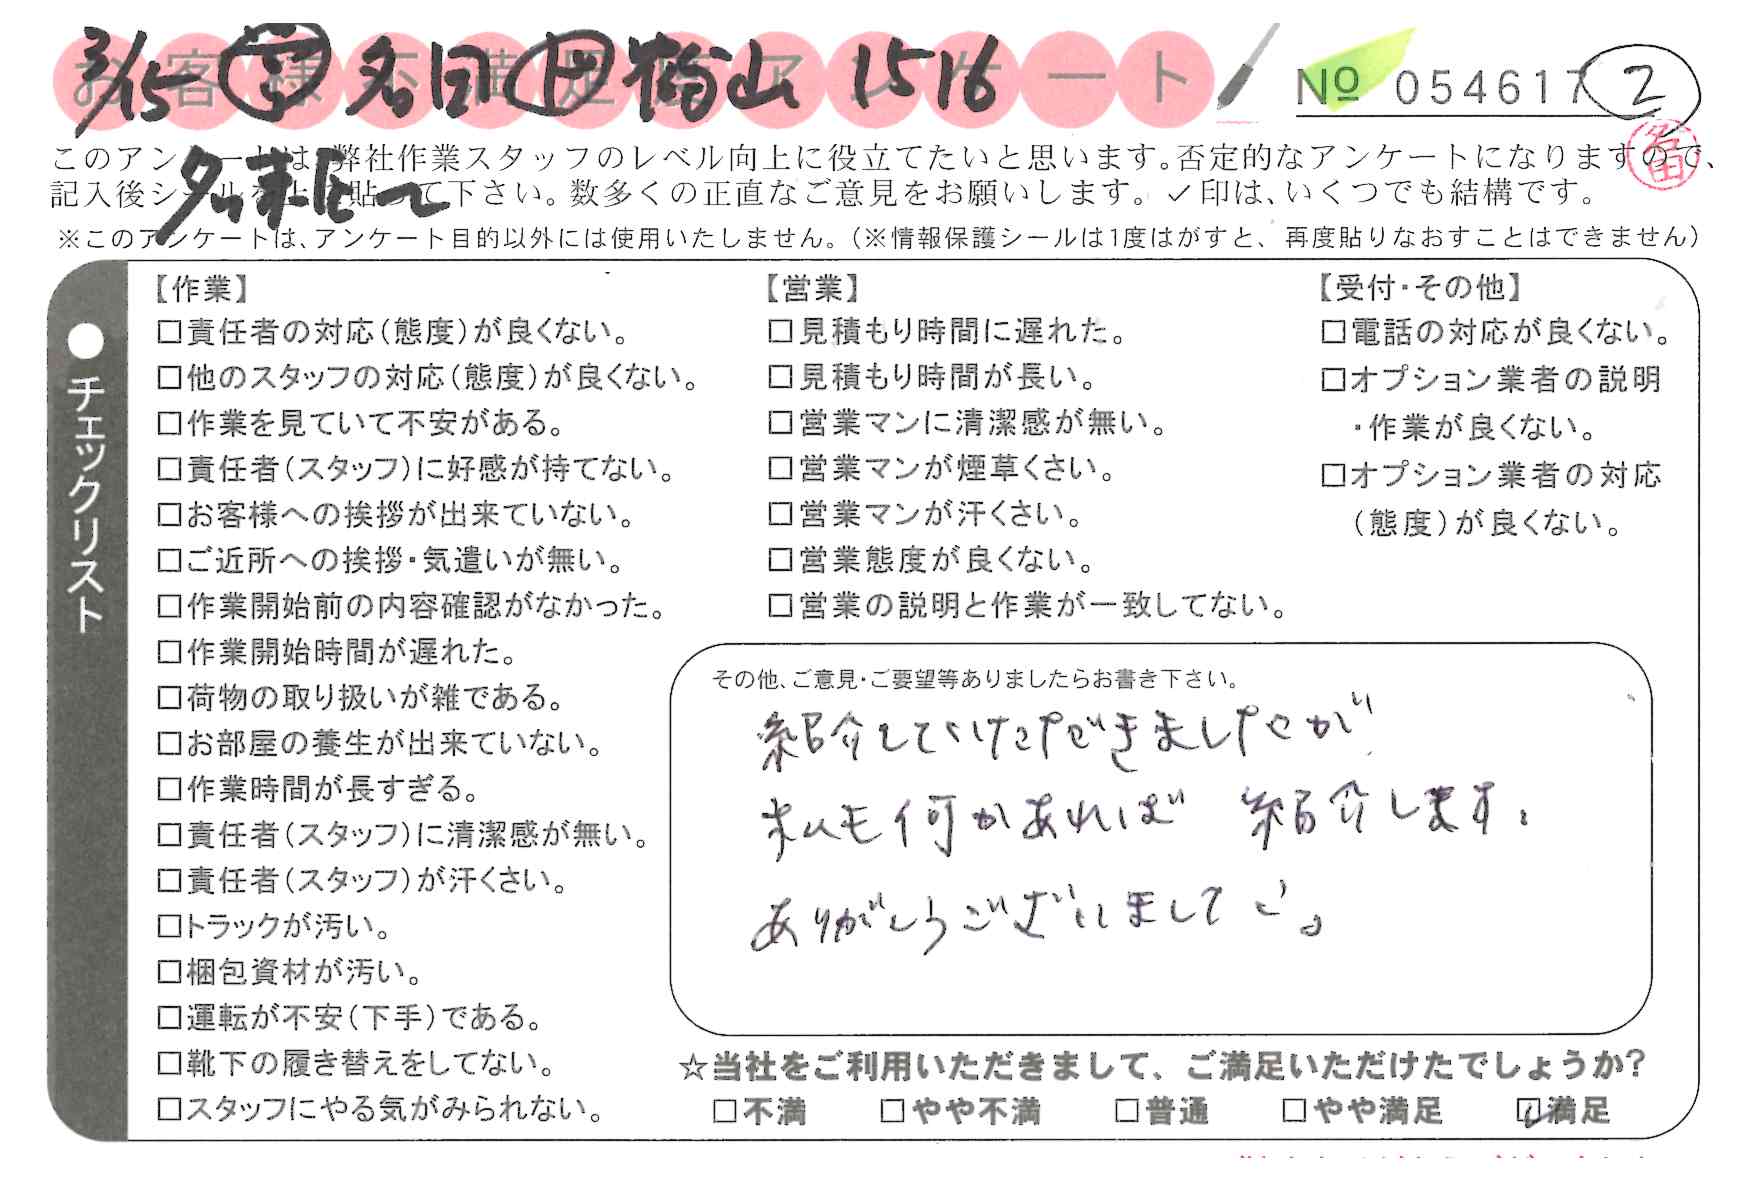 お客様不満足度アンケート
3/15 名田 1516
№ 054617 ②
このアンケートは、弊社作業スタッフのレベル向上に役立てたいと思います。否定的なアンケートになりますので、
記入後シールを上に貼って下さい。数多くの正直なご意見をお願いします。✓印は、いくつでも結構です。
※このアンケートは、アンケート目的以外には使用いたしません。(※情報保護シールは1度はがすと、再度貼りなおすことはできません)
●チェックリスト
【作業】
□責任者の対応(態度)が良くない。
□他のスタッフの対応(態度)が良くない。
□作業を見ていて不安がある。
□責任者(スタッフ)に好感が持てない。
□お客様への挨拶が出来ていない。
□ご近所への挨拶・気遣いが無い。
□作業開始前の内容確認がなかった。
□作業開始時間が遅れた。
□荷物の取り扱いが雑である。
□お部屋の養生が出来ていない。
□作業時間が長すぎる。
□責任者(スタッフ)に清潔感が無い。
□責任者(スタッフ)が汗くさい。
□トラックが汚い。
□梱包資材が汚い。
□運転が不安(下手)である。
□靴下の履き替えをしてない。
□スタッフにやる気がみられない。
【営業】
□見積もり時間に遅れた。
□見積もり時間が長い。
□営業マンに清潔感が無い。
□営業マンが煙草くさい。
□営業マンが汗くさい。
□営業態度が良くない。
□営業の説明と作業が一致してない。
【受付・その他】
□電話の対応が良くない。
□オプション業者の説明
・作業が良くない。
□オプション業者の対応
(態度)が良くない。
その他、ご意見・ご要望等ありましたらお書き下さい。
紹介していただきましたが
私も何かあれば 紹介します。
ありがとうございました。
☆当社をご利用いただきまして、ご満足いただけたでしょうか?
□不満 □やや不満 □普通 □やや満足 ☑満足